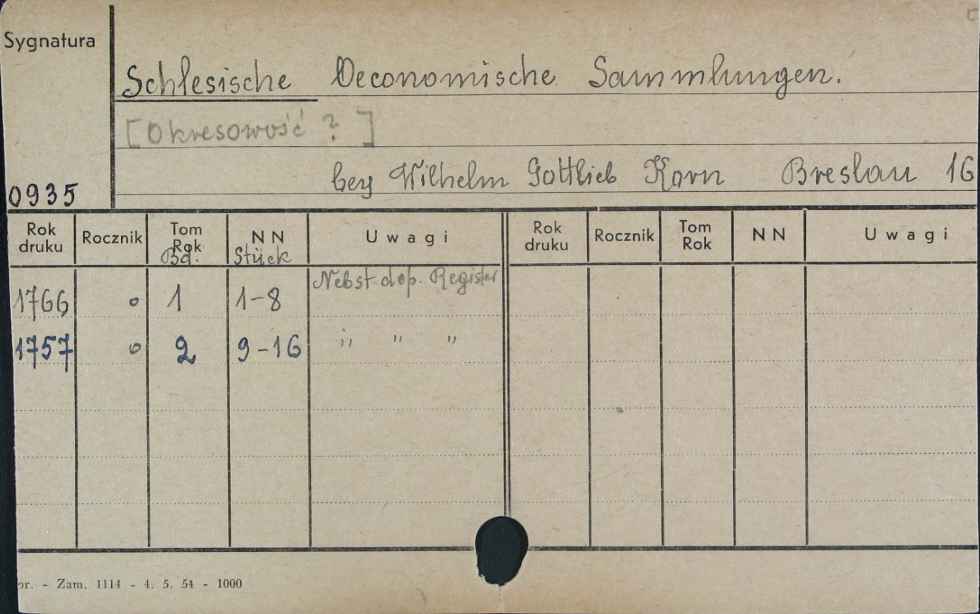 Sygnatura
Schlesische Oeconomische Sammlungen.
[Okresowość ?]
bey Wilhelm Gottlieb Korn Breslau 16
0935
Rok druku Rocznik Tom Rok Bd. NN Stück Uwagi Rok druku Rocznik Tom Rok NN Uwagi
Nebst dop. Register
1766 o 1 1-8
1757 o 2 9-16 " " "
or. - Zam. 1114 - 4. 5. 54 - 1000